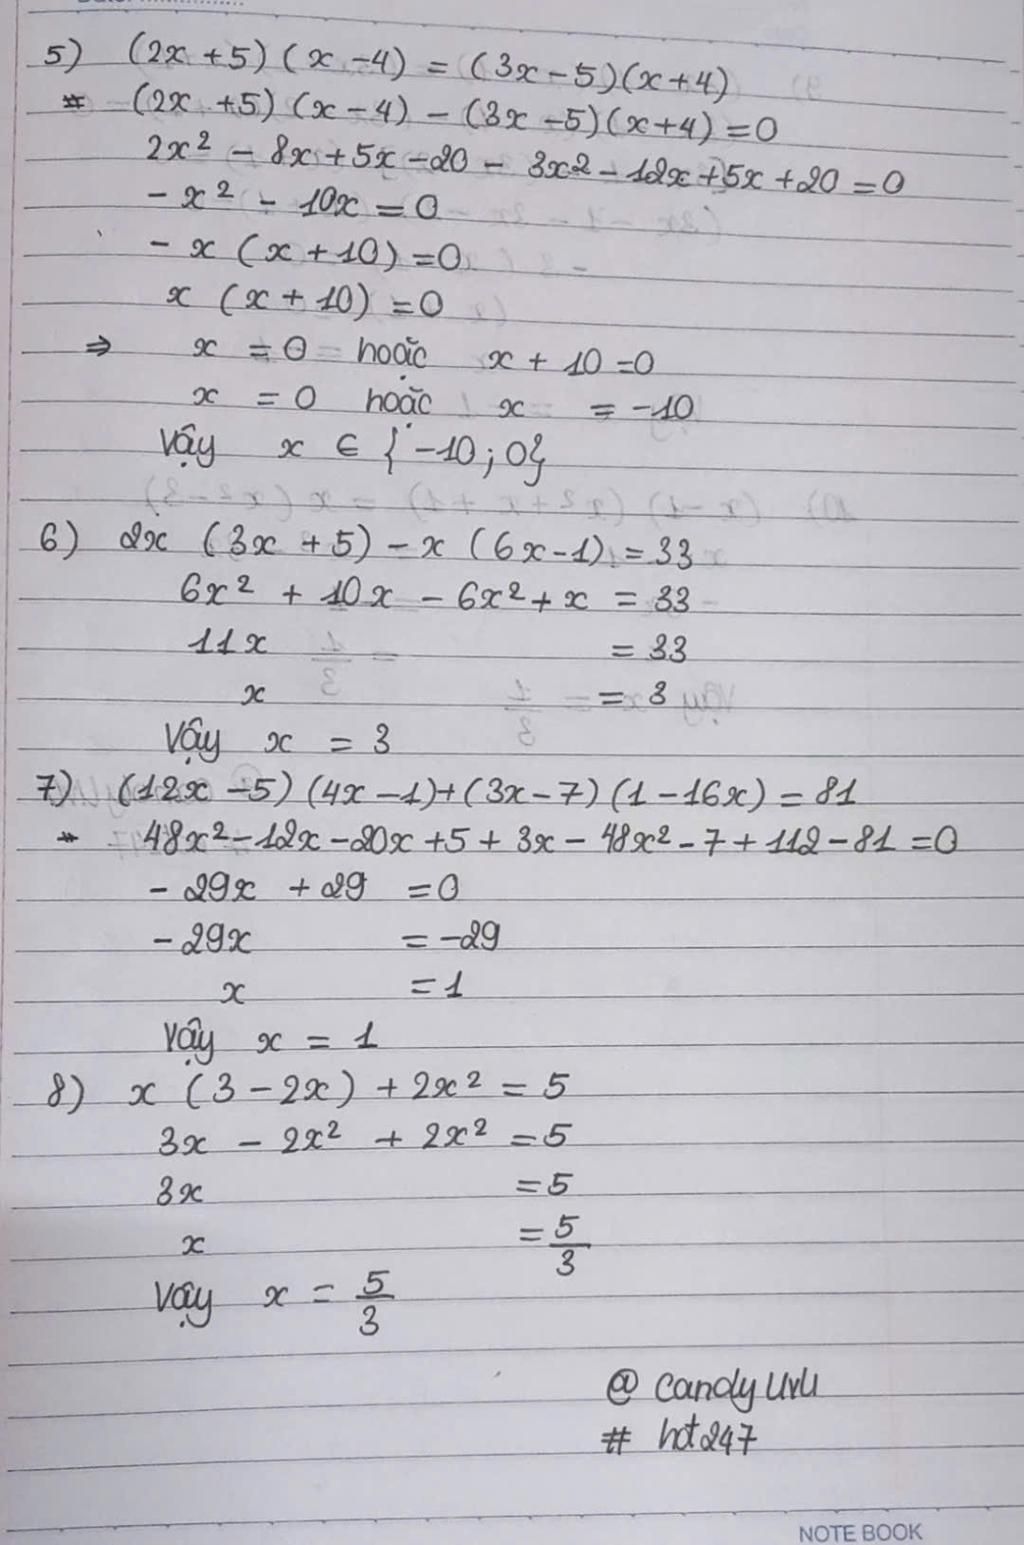 5) (2x + 5) (x - 4) = (3x - 5)(x + 4)
* (2x + 5) (x - 4) - (3x - 5)(x + 4) = 0
2x² - 8x + 5x - 20 - 3x2 - 12x + 5x + 20 = 0
- x² - 10x = 0
- x (x + 10) = 0
x (x + 10) = 0
⇒ x = 0 hoặc x + 10 = 0
x = 0 hoặc x = -10
Vậy x ∈ {-10; 0}
6) 2x (3x + 5) - x (6x - 1) = 33
6x² + 10x - 6x² + x = 33
11x = 33
x = 3
Vậy x = 3
7) (12x - 5) (4x - 1) + (3x - 7) (1 - 16x) = 81
* 48x² - 12x - 20x + 5 + 3x - 48x² - 7 + 112 - 81 = 0
- 29x + 29 = 0
- 29x = -29
x = 1
Vậy x = 1
8) x (3 - 2x) + 2x² = 5
3x - 2x² + 2x² = 5
3x = 5
x = 5/3
Vậy x = 5/3
@ candy UvU
# hot247
NOTE BOOK